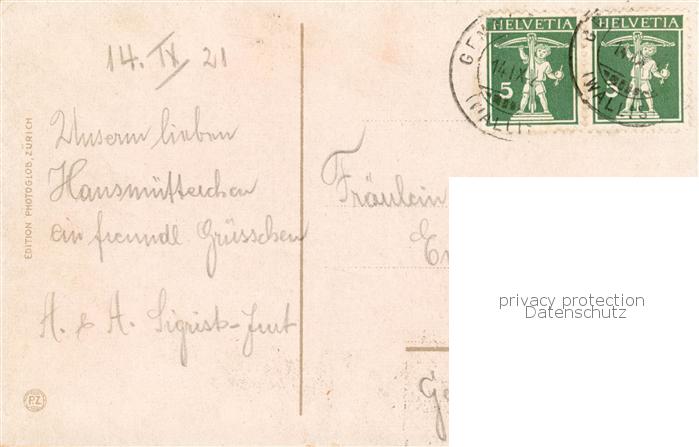 14. IX 21
Unserm lieben
Hausmütterchen
ein freundl. Grüsschen
A. & A. Sigrist-
EDITION PHOTOGLOB, ZÜRICH
PZ
HELVETIA
5
HELVETIA
5
14.IX.
(WALLIS
(WALLIS
Fräulein
privacy protection
Datenschutz